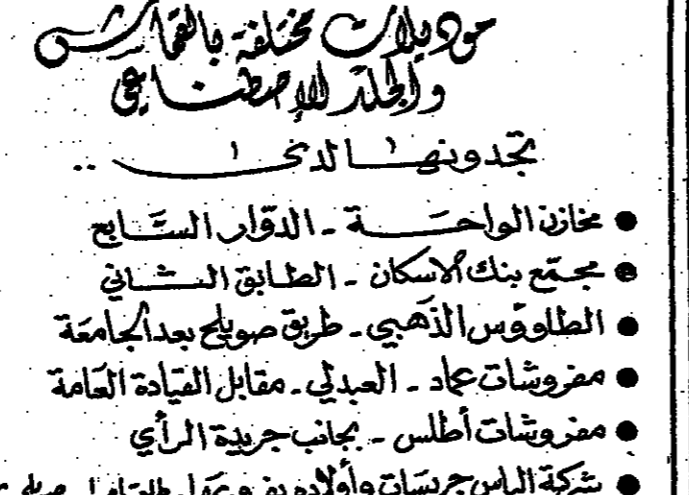 موديلات مختلفة بالقماش
والجلد الإصطناعي
تجدونها لدى ..
● مخازن الواحة - الدوّار السّابع
● مجمّع بنك الاسكان - الطابق الثاني
● الطاووس الذهبي - طريق صويلح بعد الجامعة
● مفروشات عماد - العبدلي - مقابل القيادة العامة
● مفروشات أطلس - بجانب جريدة الرأي
● شركة الياس جريسات وأولاده